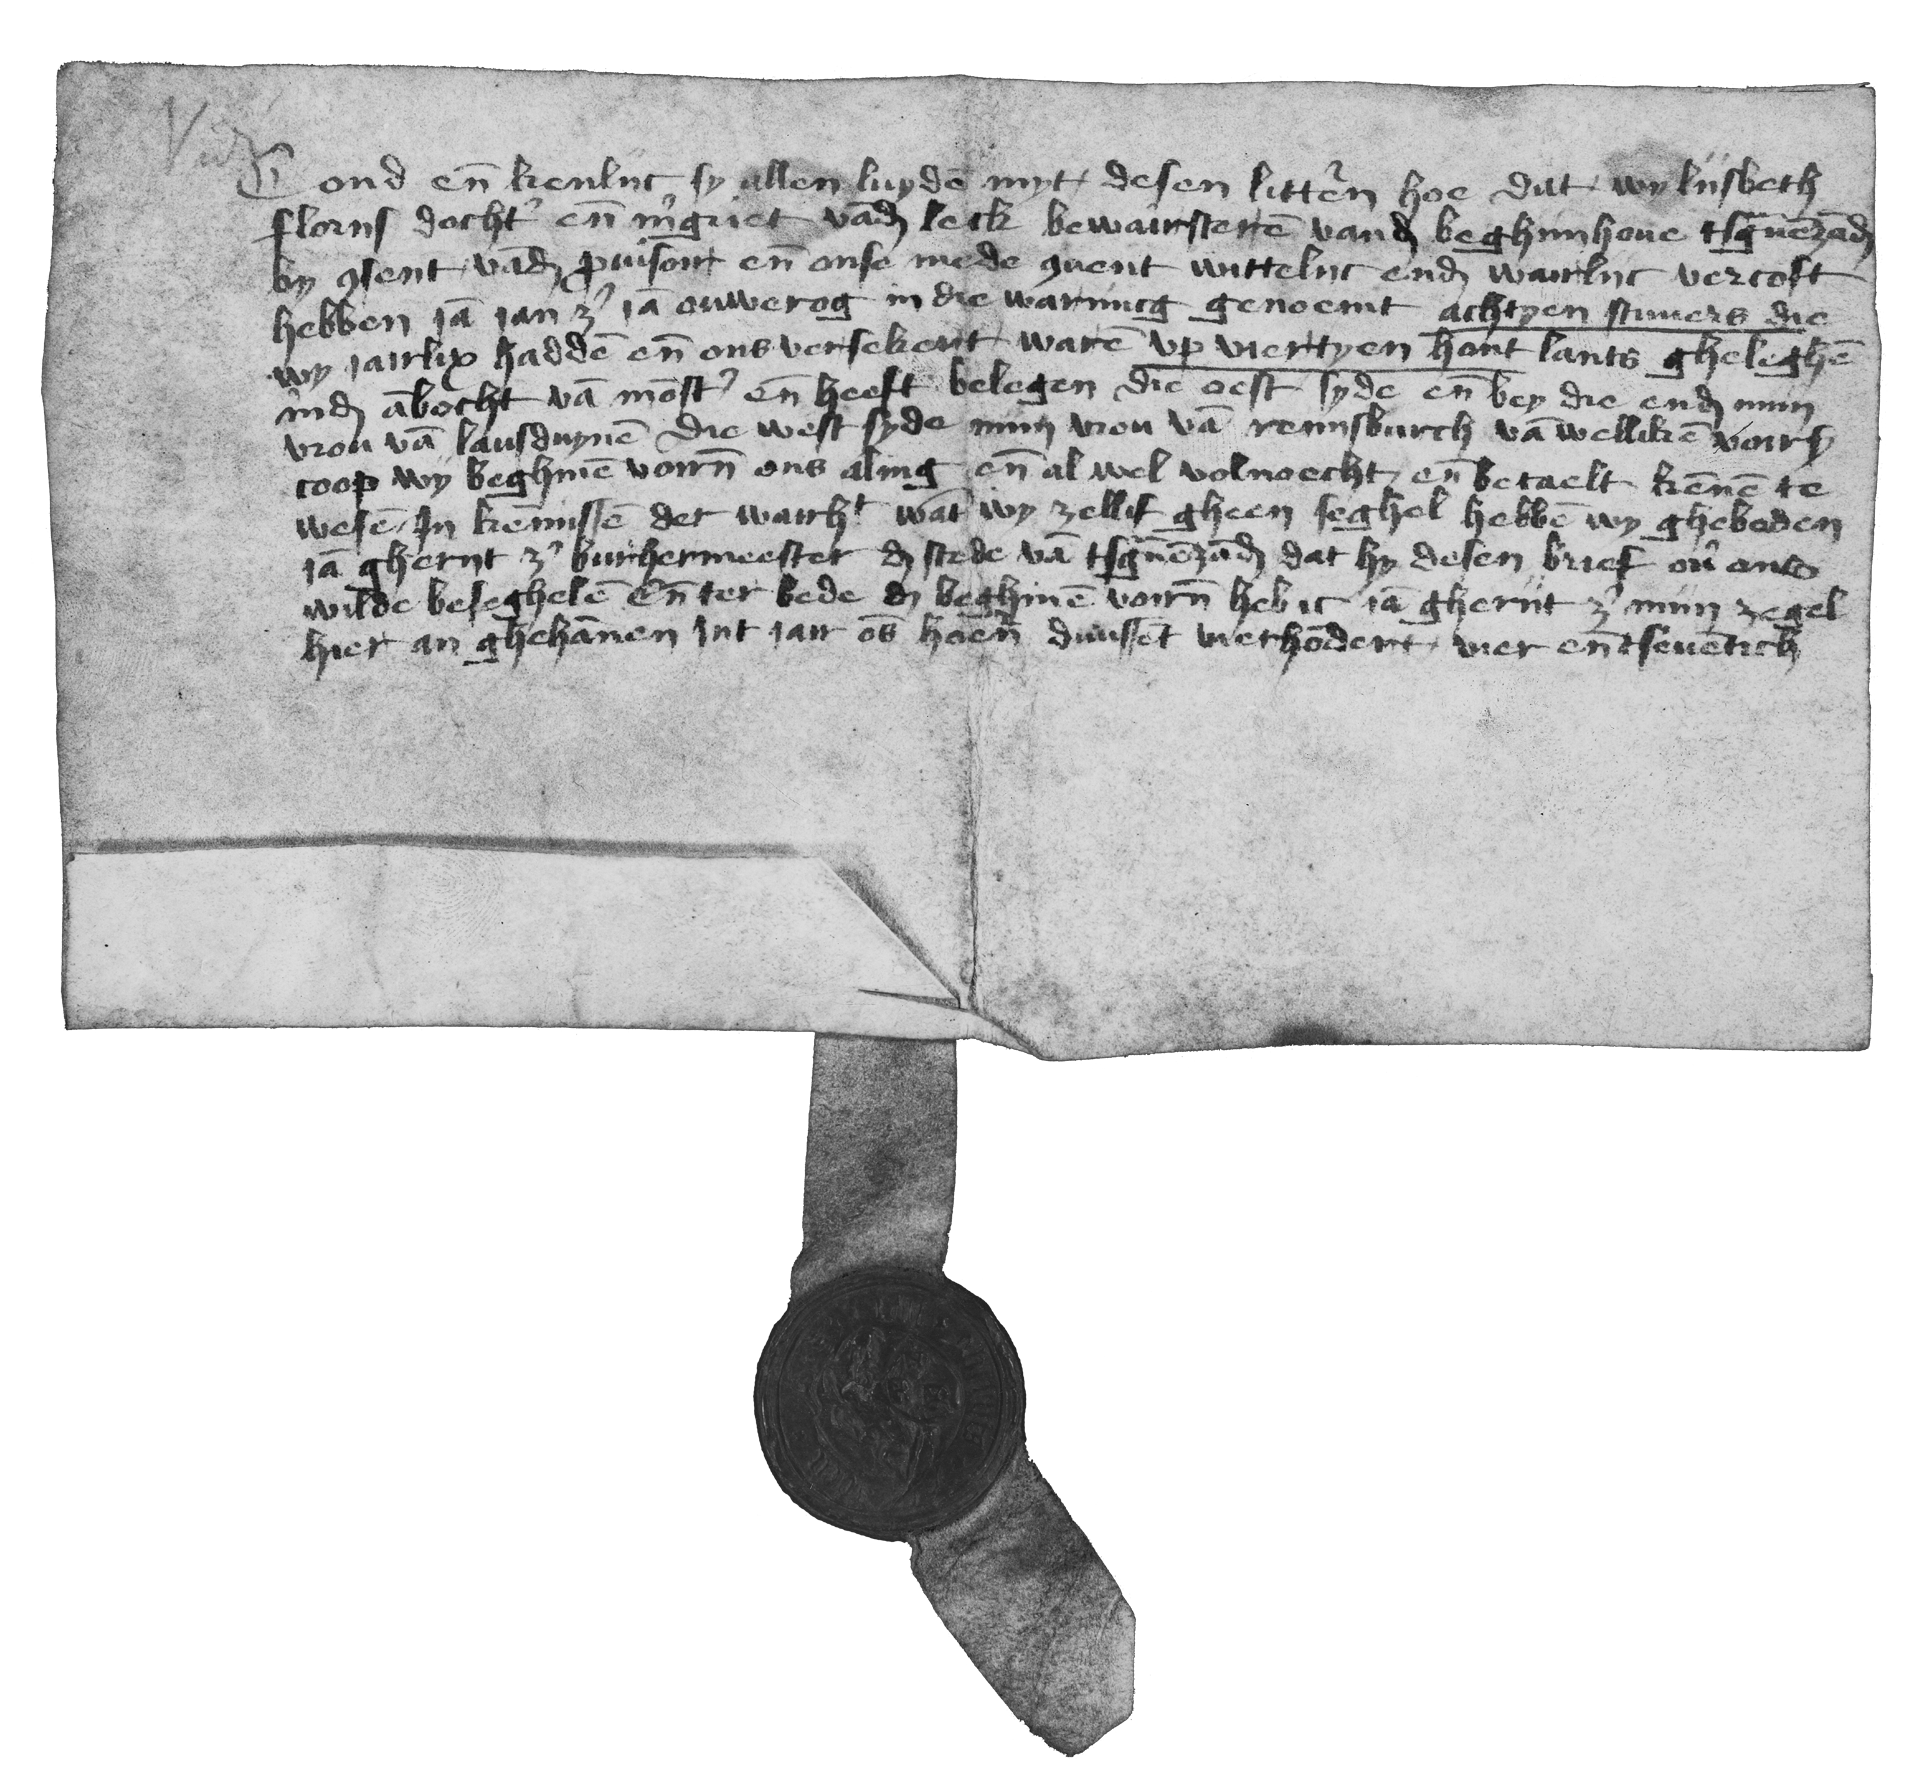 Cond en̄ kenlyc sy allen luydē myt desen littēn hoe dat wy lijsbeth
florys docht' en̄ m'griet vād leck bewairsterē vand beghynhoue tsgūezād
by ꝯsent vād ꝓuisoir en̄ onse mede ꝯuent wittelyc end wairlyc vercoft
hebben jā jan z' jā ouwerog in die warincg genoemt achtyen stuuers die
wy jairlix haddē en̄ ons versekert warē vp viertyen hont lants gheleghē
ind ābocht vā mōst' en̄ heeft belegen die oest syde en̄ bey die end myn
vrou vā lausduynē die west syde myn vrou vā reynsburch vā wellikē voirs
coop wy beghinē voirn̄ ons aling en̄ al wel volnoecht en̄ betaelt kēnē te
wesē In kēnissē der wairh^t wāt wy zellif gheen seghel hebbē wy ghebeden
jā gheryt z' burhermeester d stede vā tsgūezād dat hy desen brief ou' ons
wilde beseghelē En̄ ter bede d beghinē voirn̄ heb ic jā gheryt z' myn zegel
hier an ghehānen Int jair ōs heren̄ duussēt vierhōdert vier en̄ tseuētich